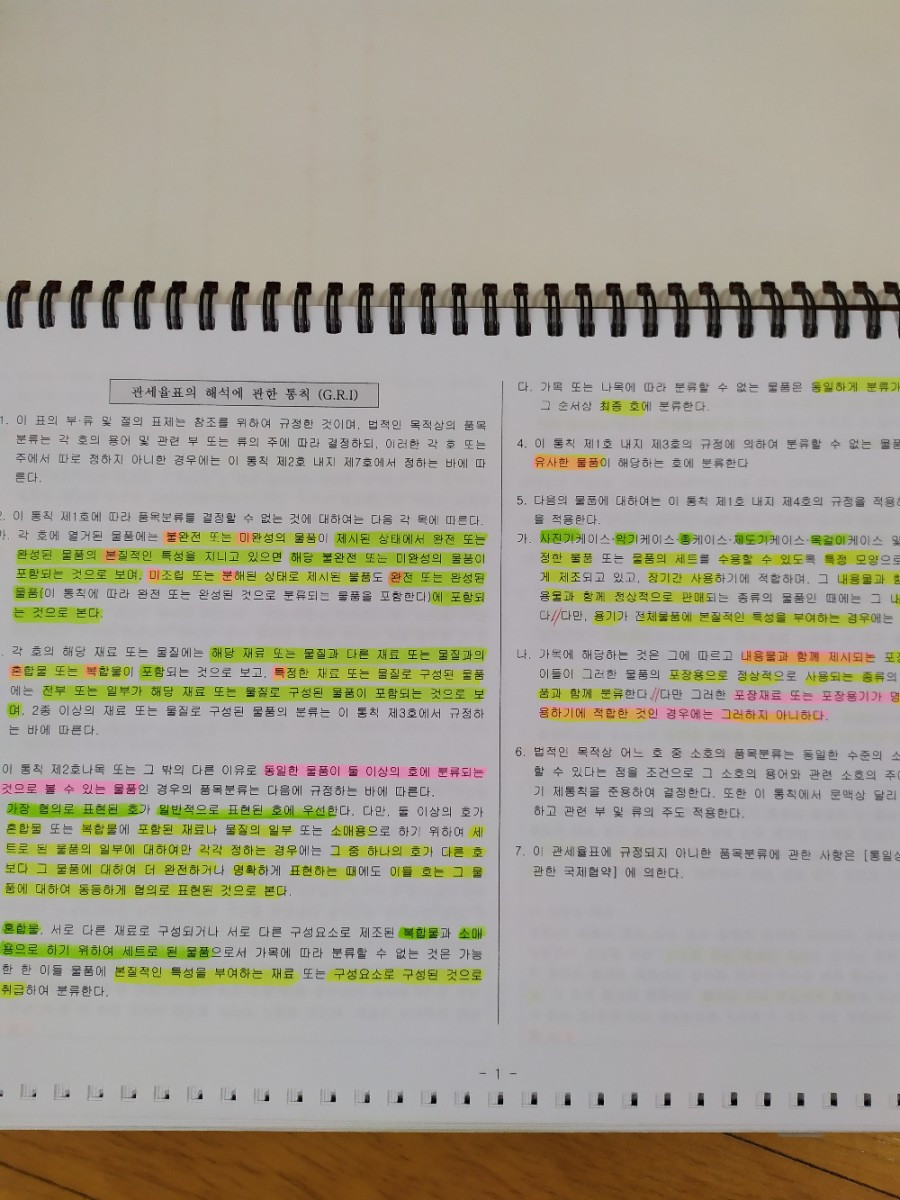 관세율표의 해석에 관한 통칙 (G.R.I)
1. 이 표의 부·류 및 절의 표제는 참조를 위하여 규정한 것이며, 법적인 목적상의 품목
분류는 각 호의 용어 및 관련 부 또는 류의 주에 따라 결정하되, 이러한 각 호 또는
주에서 따로 정하지 아니한 경우에는 이 통칙 제2호 내지 제7호에서 정하는 바에 따
른다.
2. 이 통칙 제1호에 따라 품목분류를 결정할 수 없는 것에 대하여는 다음 각 목에 따른다.
가. 각 호에 열거된 물품에는 불완전 또는 미완성의 물품이 제시된 상태에서 완전 또는
완성된 물품의 본질적인 특성을 지니고 있으면 해당 불완전 또는 미완성의 물품이
포함되는 것으로 보며, 미조립 또는 분해된 상태로 제시된 물품도 완전 또는 완성된
물품(이 통칙에 따라 완전 또는 완성된 것으로 분류되는 물품을 포함한다)에 포함되
는 것으로 본다.
. 각 호의 해당 재료 또는 물질에는 해당 재료 또는 물질과 다른 재료 또는 물질과의
혼합물 또는 복합물이 포함되는 것으로 보고, 특정한 재료 또는 물질로 구성된 물품
에는 전부 또는 일부가 해당 재료 또는 물질로 구성된 물품이 포함되는 것으로 보
며, 2종 이상의 재료 또는 물질로 구성된 물품의 분류는 이 통칙 제3호에서 규정하
는 바에 따른다.
이 통칙 제2호나목 또는 그 밖의 다른 이유로 동일한 물품이 둘 이상의 호에 분류되는
것으로 볼 수 있는 물품인 경우의 품목분류는 다음에 규정하는 바에 따른다.
가장 협의로 표현된 호가 일반적으로 표현된 호에 우선한다. 다만, 둘 이상의 호가
혼합물 또는 복합물에 포함된 재료나 물질의 일부 또는 소매용으로 하기 위하여 세
트로 된 물품의 일부에 대하여만 각각 정하는 경우에는 그 중 하나의 호가 다른 호
보다 그 물품에 대하여 더 완전하거나 명확하게 표현하는 때에도 이들 호는 그 물
품에 대하여 동등하게 협의로 표현된 것으로 본다.
혼합물, 서로 다른 재료로 구성되거나 서로 다른 구성요소로 제조된 복합물과 소매
용으로 하기 위하여 세트로 된 물품으로서 가목에 따라 분류할 수 없는 것은 가능
한 한 이들 물품에 본질적인 특성을 부여하는 재료 또는 구성요소로 구성된 것으로
취급하여 분류한다.
다. 가목 또는 나목에 따라 분류할 수 없는 물품은 동일하게 분류가
그 순서상 최종 호에 분류한다.
4. 이 통칙 제1호 내지 제3호의 규정에 의하여 분류할 수 없는 물품
유사한 물품이 해당하는 호에 분류한다
5. 다음의 물품에 대하여는 이 통칙 제1호 내지 제4호의 규정을 적용하
을 적용한다.
가. 사진기케이스·악기케이스·총케이스·제도기케이스·목걸이케이스 및
정한 물품 또는 물품의 세트를 수용할 수 있도록 특정 모양으로
게 제조되고 있고, 장기간 사용하기에 적합하며, 그 내용물과 함
용물과 함께 정상적으로 판매되는 종류의 물품인 때에는 그 내
다//다만, 용기가 전체물품에 본질적인 특성을 부여하는 경우에는
나. 가목에 해당하는 것은 그에 따르고 내용물과 함께 제시되는 포장
이들이 그러한 물품의 포장용으로 정상적으로 사용되는 종류의
품과 함께 분류한다//다만 그러한 포장재료 또는 포장용기가 명
용하기에 적합한 것인 경우에는 그러하지 아니하다.
6. 법적인 목적상 어느 호 중 소호의 품목분류는 동일한 수준의 소
할 수 있다는 점을 조건으로 그 소호의 용어와 관련 소호의 주에
기 제통칙을 준용하여 결정한다. 또한 이 통칙에서 문맥상 달리
하고 관련 부 및 류의 주도 적용한다.
7. 이 관세율표에 규정되지 아니한 품목분류에 관한 사항은 [통일상
관한 국제협약] 에 의한다.
- 1 -